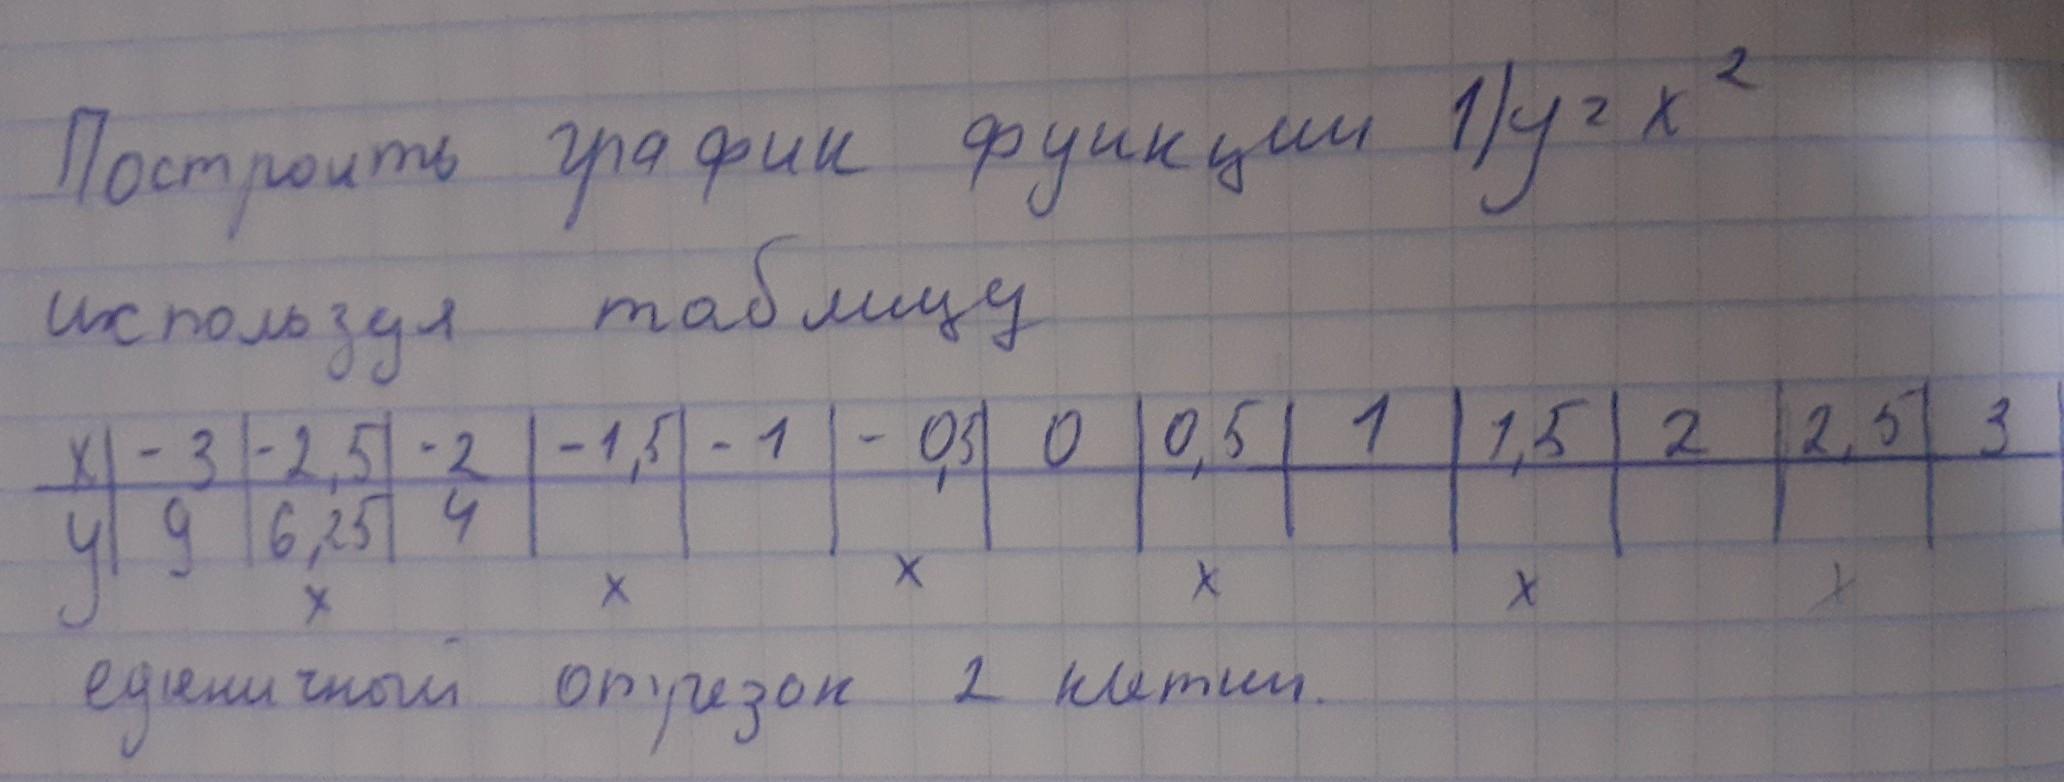 Построить график функции 1) y = x²
используя таблицу
x | -3 | -2,5 | -2 | -1,5 | -1 | -0,5 | 0 | 0,5 | 1 | 1,5 | 2 | 2,5 | 3
y | 9 | 6,25 | 4
x x x x x x
единичный отрезок 2 клетки.